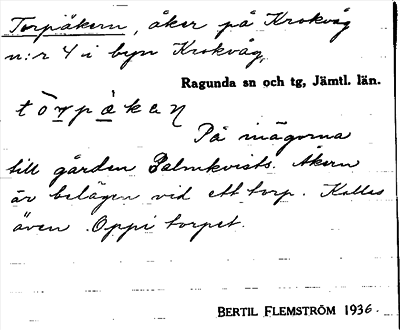 Torpåkern, åker på Krokvåg
n:r 4 i byn Krokvåg,
Ragunda sn och tg, Jämtl. län.
tòrpàkaɳ
På inägorna
till gården Palmkvists. Åkern
är belägen vid ett torp. Kallas
även Oppi torpet.
BERTIL FLEMSTRÖM 1936.